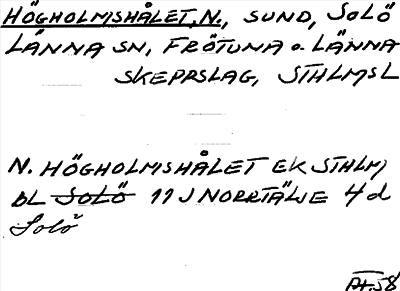 HÖGHOLMSHÅLET, N., SUND, SOLÖ
LÄNNA SN, FRÖTUNA o. LÄNNA
SKEPPSLAG, STHLMSL
N. HÖGHOLMSHÅLET EK STHLM
BL SOLÖ 11J NORRTÄLJE 4d
Solö